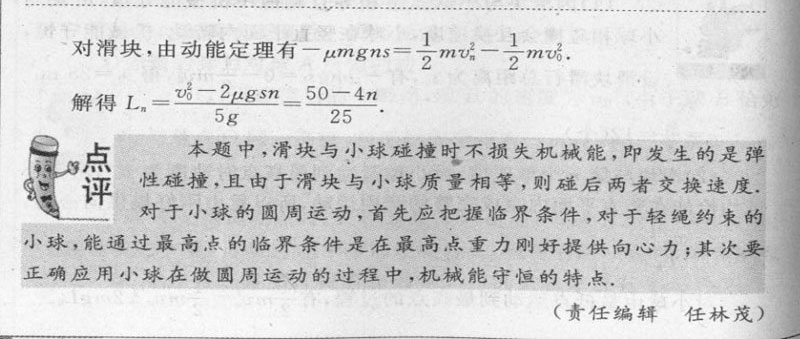 对滑块,由动能定理有－μmgns=\frac{1}{2}mv_n^2－\frac{1}{2}mv_0^2.
解得 L_n=\frac{v_0^2－2μgsn}{5g}=\frac{50－4n}{25}.
点评
本题中,滑块与小球碰撞时不损失机械能,即发生的是弹
性碰撞,且由于滑块与小球质量相等,则碰后两者交换速度.
对于小球的圆周运动,首先应把握临界条件,对于轻绳约束的
小球,能通过最高点的临界条件是在最高点重力刚好提供向心力;其次要
正确应用小球在做圆周运动的过程中,机械能守恒的特点.
(责任编辑 任林茂)